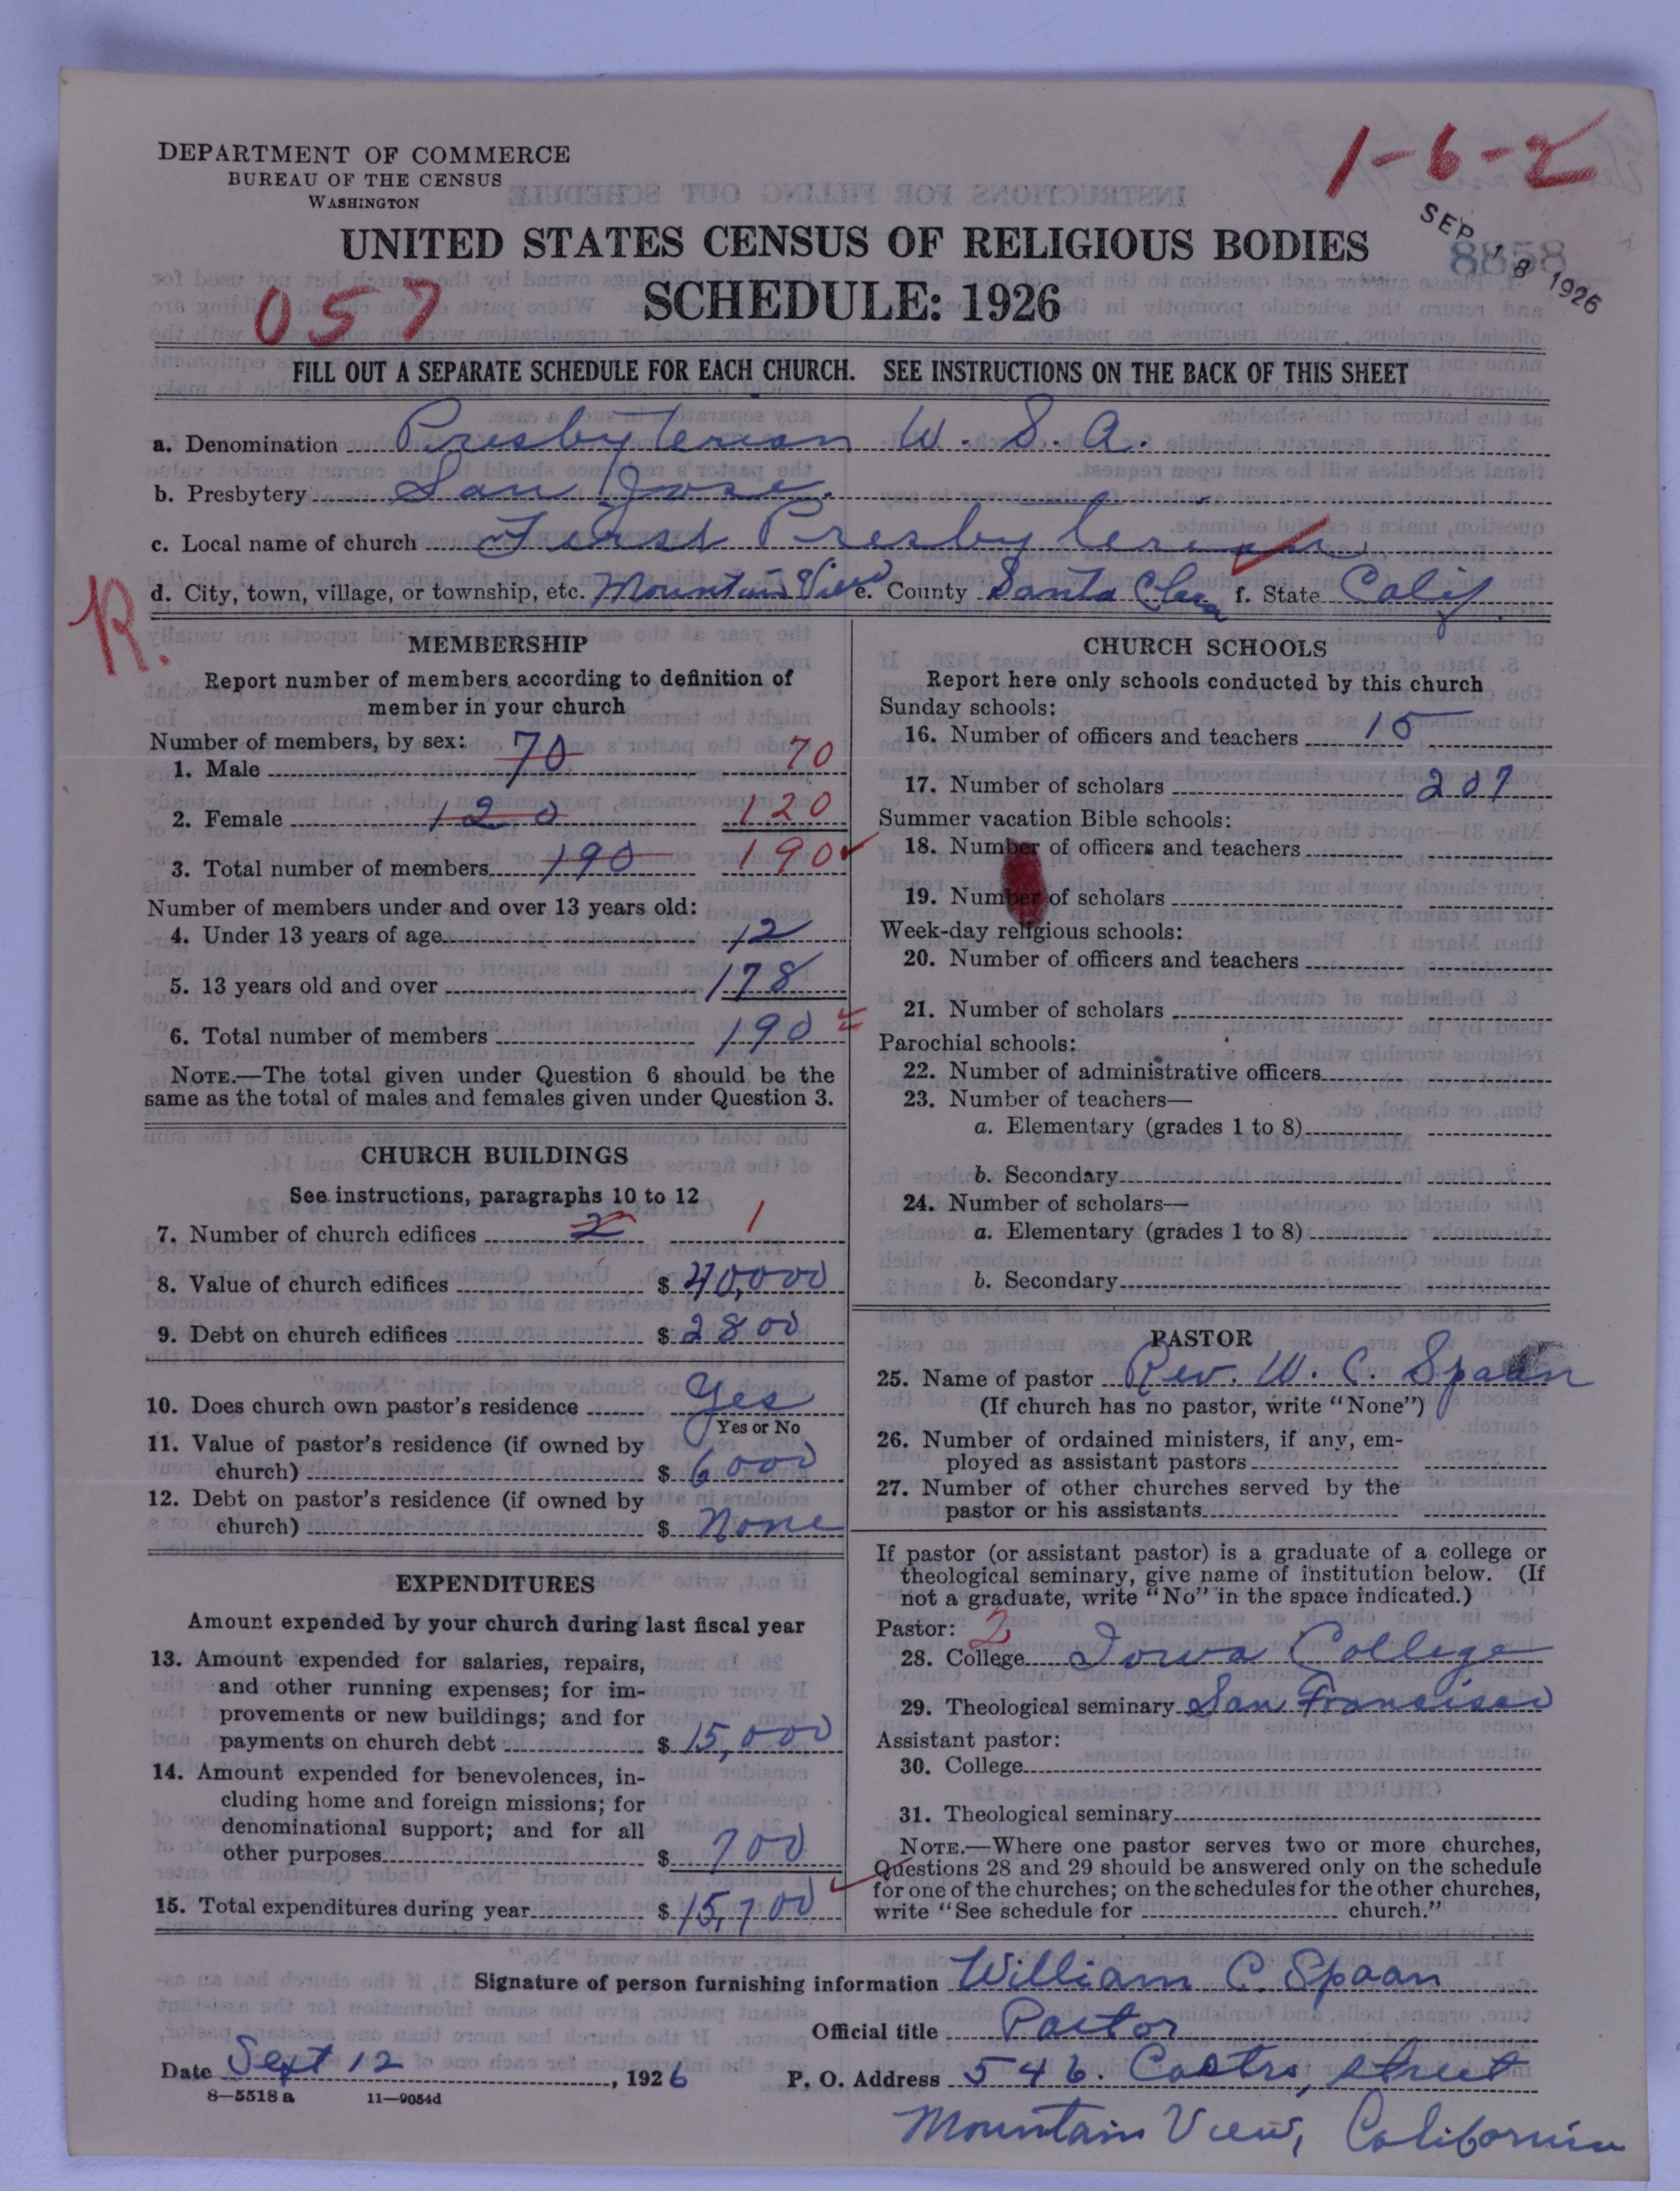 1-6-2
DEPARTMENT OF COMMERCE
BUREAU OF THE CENSUS
WASHINGTON
SEP 18 1926
8858
UNITED STATES CENSUS OF RELIGIOUS BODIES
057
SCHEDULE: 1926
FILL OUT A SEPARATE SCHEDULE FOR EACH CHURCH. SEE INSTRUCTIONS ON THE BACK OF THIS SHEET
a. Denomination Presbyterian U. S. A.
b. Presbytery San Jose.
c. Local name of church First Presbyterian
d. City, town, village, or township, etc. Mountain View e. County Santa Clara f. State Calif.
R.
MEMBERSHIP
Report number of members according to definition of
member in your church
Number of members, by sex:
1. Male 70 70
2. Female 120 120
3. Total number of members 190 190
Number of members under and over 13 years old:
4. Under 13 years of age 12
5. 13 years old and over 178
6. Total number of members 190
NOTE.—The total given under Question 6 should be the
same as the total of males and females given under Question 3.
CHURCH BUILDINGS
See instructions, paragraphs 10 to 12
7. Number of church edifices 2 1
8. Value of church edifices $ 40,000
9. Debt on church edifices $ 2800
10. Does church own pastor's residence Yes
Yes or No
11. Value of pastor's residence (if owned by
church) $ 6000
12. Debt on pastor's residence (if owned by
church) $ None
EXPENDITURES
Amount expended by your church during last fiscal year
13. Amount expended for salaries, repairs,
and other running expenses; for im-
provements or new buildings; and for
payments on church debt $ 15,000
14. Amount expended for benevolences, in-
cluding home and foreign missions; for
denominational support; and for all
other purposes $ 700
15. Total expenditures during year $ 15,700
CHURCH SCHOOLS
Report here only schools conducted by this church
Sunday schools:
16. Number of officers and teachers 15
17. Number of scholars 207
Summer vacation Bible schools:
18. Number of officers and teachers
19. Number of scholars
Week-day religious schools:
20. Number of officers and teachers
21. Number of scholars
Parochial schools:
22. Number of administrative officers
23. Number of teachers—
a. Elementary (grades 1 to 8)
b. Secondary
24. Number of scholars—
a. Elementary (grades 1 to 8)
b. Secondary
PASTOR
25. Name of pastor Rev. W. C. Spaan
(If church has no pastor, write "None")
26. Number of ordained ministers, if any, em-
ployed as assistant pastors
27. Number of other churches served by the
pastor or his assistants
If pastor (or assistant pastor) is a graduate of a college or
theological seminary, give name of institution below. (If
not a graduate, write "No" in the space indicated.)
Pastor: 2
28. College Iowa College
29. Theological seminary San Francisco
Assistant pastor:
30. College
31. Theological seminary
NOTE.—Where one pastor serves two or more churches,
Questions 28 and 29 should be answered only on the schedule
for one of the churches; on the schedules for the other churches,
write "See schedule for church."
Signature of person furnishing information William C. Spaan
Official title Pastor
Date Sept 12, 1926 P. O. Address 546. Castro, Street
8—5518 a 11—9054d
Mountain View, California